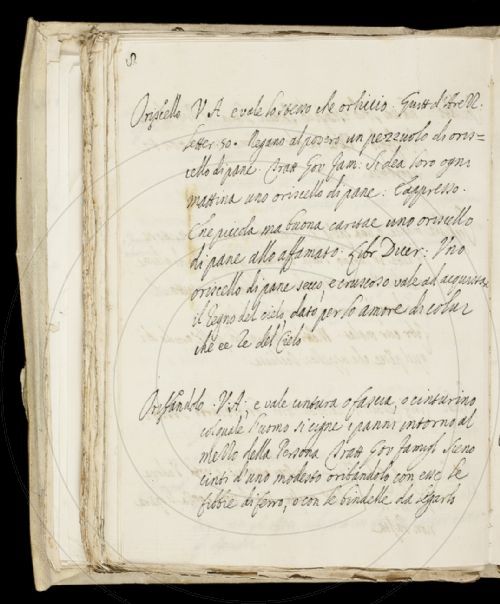 Oriscello. V. A. e vale lo stesso che orliccio. Guitt. d'Are ZZ.
Letter. 50. Negano al povero un pezzuolo di oris=
cello di pane. Tratt. Gov. Fam: Si dea loro ogni
mattina uno oriscello di pane: Eappresso.
Che piccola ma buona caritae uno oriscello
di pane allo affamato. Libr. Dicer: Uno
oriscello di pane secco, e cruscoso vale ad acquistar
il Regno del cielo dato per lo amore di colui
che ee Re del Cielo
Orifandolo. V. A. e vale cintura o fascia, o cinturino
colquale l'uomo si cigne i panni intorno al
meZZo della Persona. Tratt. Gov. famigl. Sieno
cinti d'uno modesto orifandolo con le
fibbie di ferro, o con le bindelle da legarlo